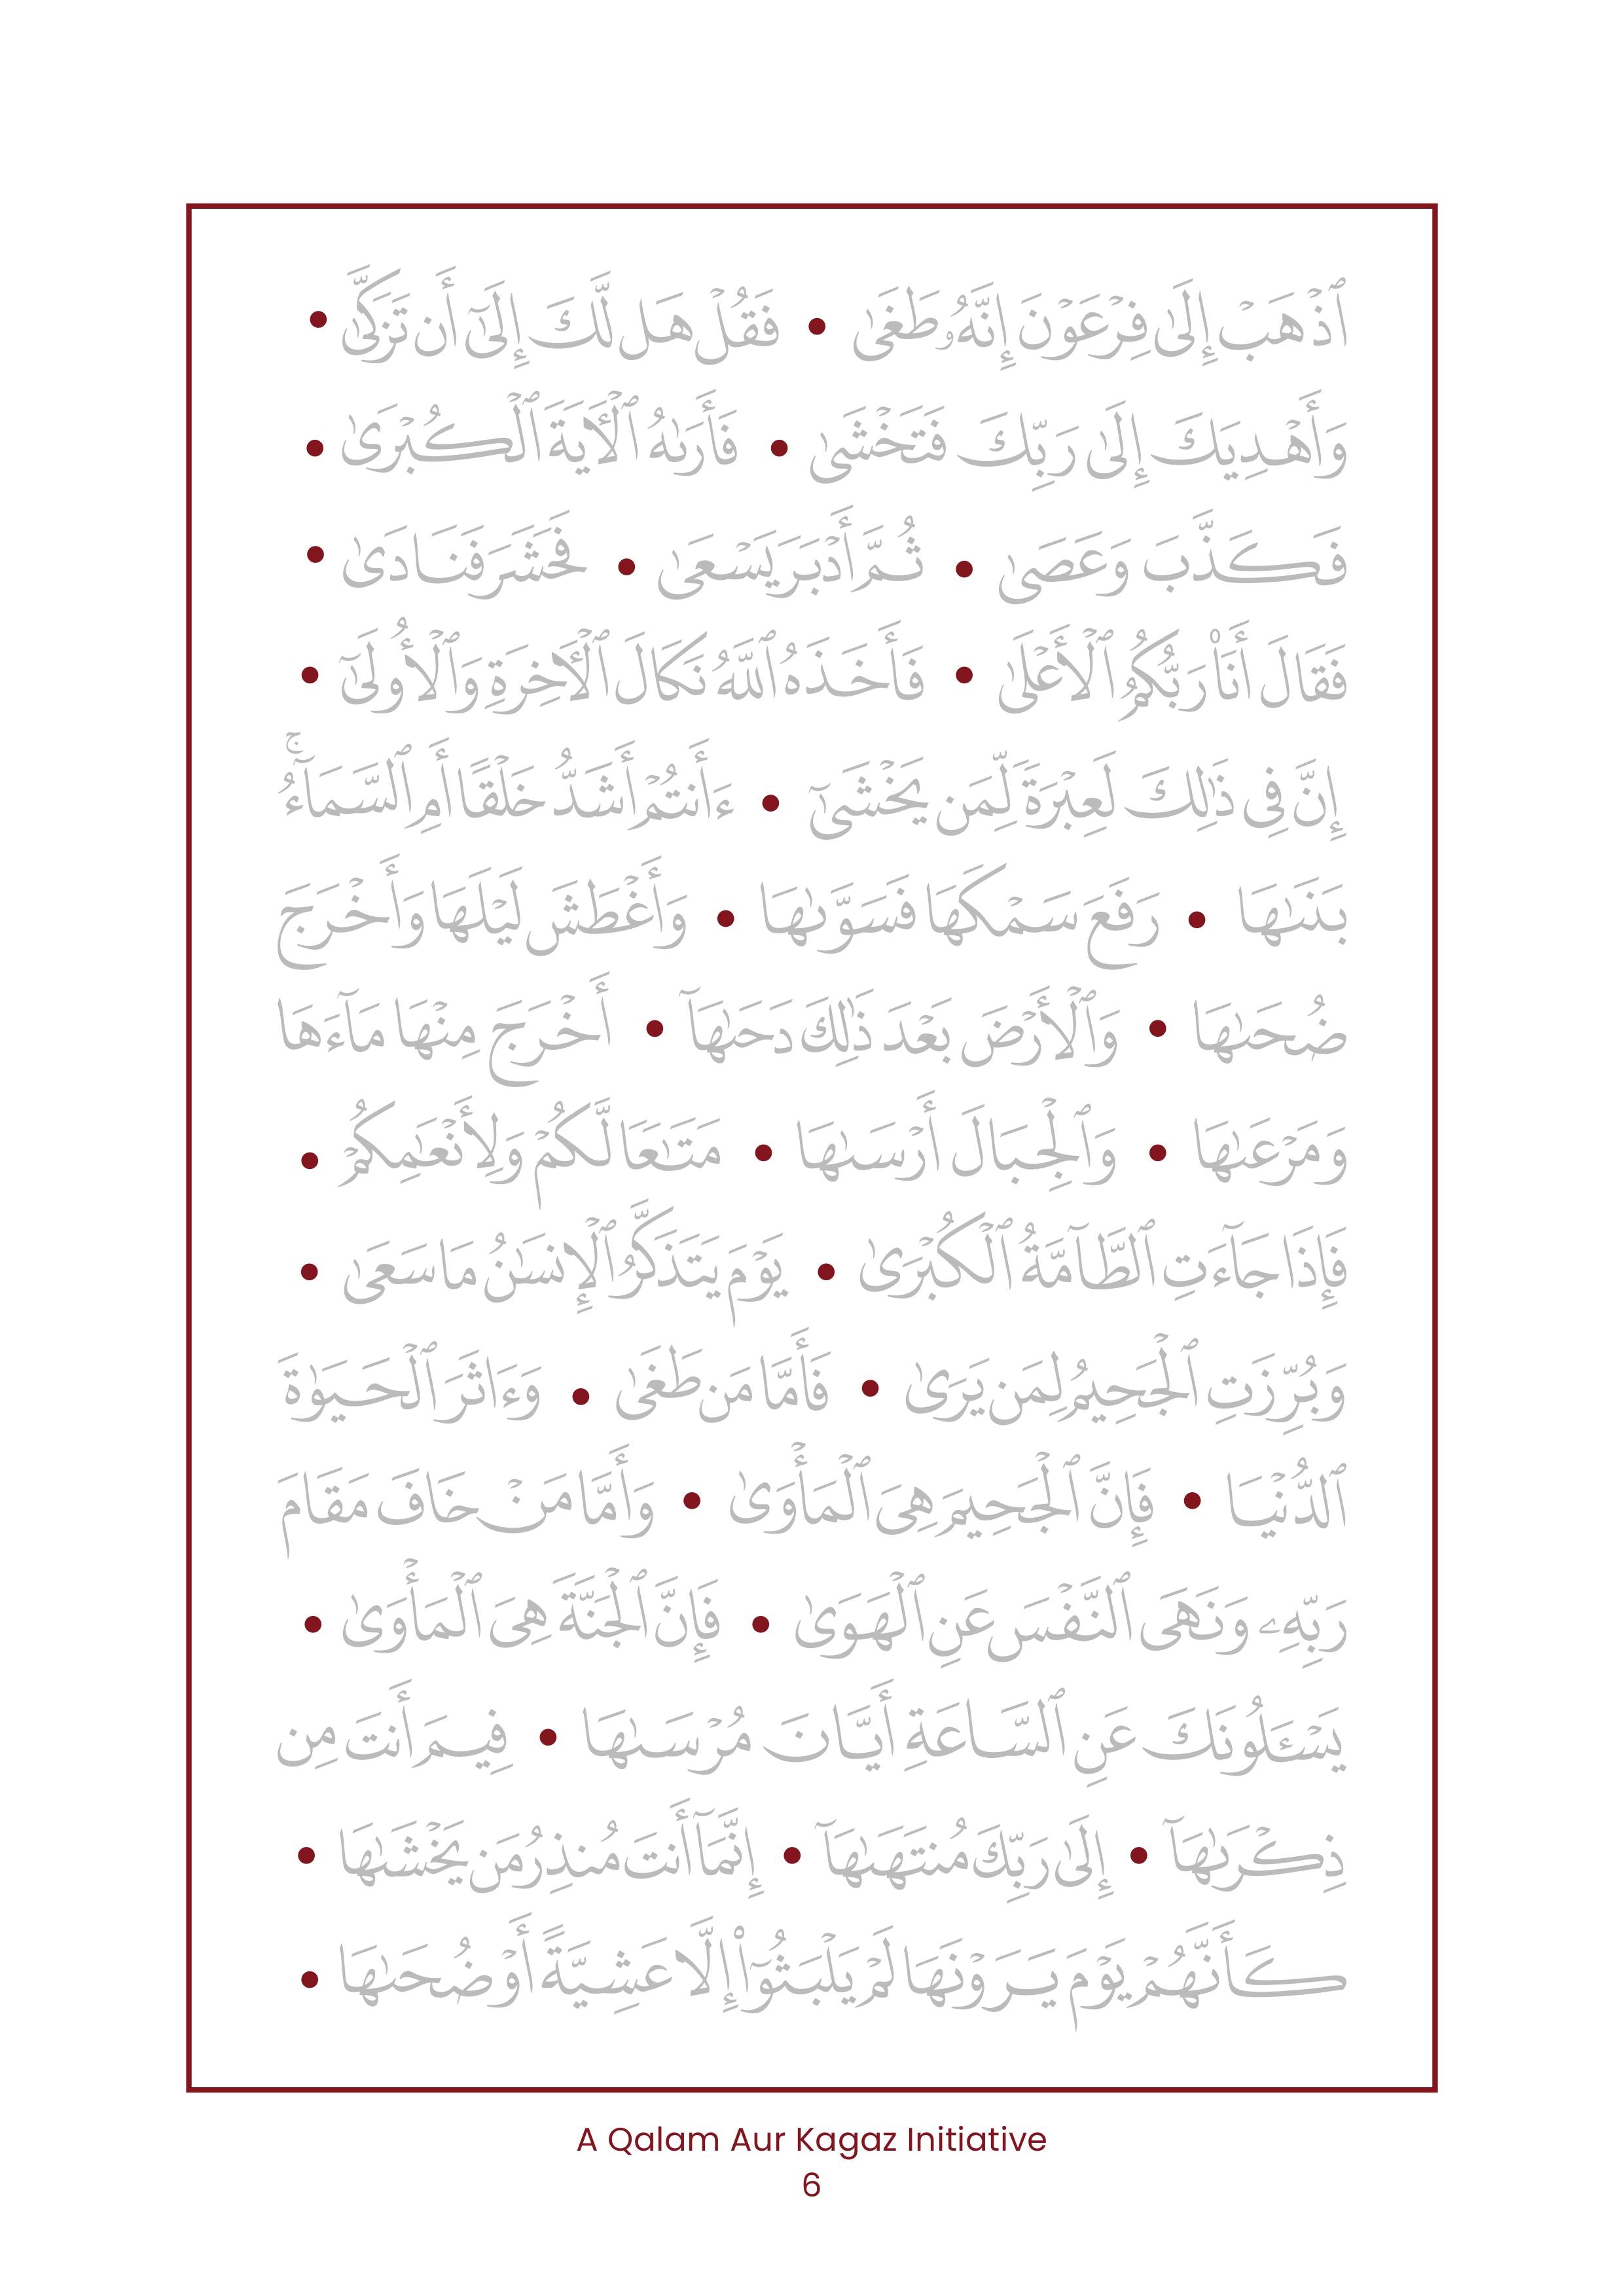 ٱذۡهَبۡ إِلَىٰ فِرۡعَوۡنَ إِنَّهُۥ طَغَىٰ • فَقُلۡ هَل لَّكَ إِلَىٰٓ أَن تَزَكَّىٰ •
وَأَهۡدِيَكَ إِلَىٰ رَبِّكَ فَتَخۡشَىٰ • فَأَرَىٰهُ ٱلۡأٓيَةَ ٱلۡكُبۡرَىٰ •
فَكَذَّبَ وَعَصَىٰ • ثُمَّ أَدۡبَرَ يَسۡعَىٰ • فَحَشَرَ فَنَادَىٰ •
فَقَالَ أَنَا۠ رَبُّكُمُ ٱلۡأَعۡلَىٰ • فَأَخَذَهُ ٱللَّهُ نَكَالَ ٱلۡأٓخِرَةِ وَٱلۡأُولَىٰٓ •
إِنَّ فِي ذَٰلِكَ لَعِبۡرَةٗ لِّمَن يَخۡشَىٰٓ • ءَأَنتُمۡ أَشَدُّ خَلۡقًا أَمِ ٱلسَّمَآءُۚ
بَنَىٰهَا • رَفَعَ سَمۡكَهَا فَسَوَّىٰهَا • وَأَغۡطَشَ لَيۡلَهَا وَأَخۡرَجَ
ضُحَىٰهَا • وَٱلۡأَرۡضَ بَعۡدَ ذَٰلِكَ دَحَىٰهَآ • أَخۡرَجَ مِنۡهَا مَآءَهَا
وَمَرۡعَىٰهَا • وَٱلۡجِبَالَ أَرۡسَىٰهَا • مَتَٰعٗا لَّكُمۡ وَلِأَنۡعَٰمِكُمۡ •
فَإِذَا جَآءَتِ ٱلطَّآمَّةُ ٱلۡكُبۡرَىٰ • يَوۡمَ يَتَذَكَّرُ ٱلۡإِنسَٰنُ مَا سَعَىٰ •
وَبُرِّزَتِ ٱلۡجَحِيمُ لِمَن يَرَىٰ • فَأَمَّا مَن طَغَىٰ • وَءَاثَرَ ٱلۡحَيَوٰةَ
ٱلدُّنۡيَا • فَإِنَّ ٱلۡجَحِيمَ هِيَ ٱلۡمَأۡوَىٰ • وَأَمَّا مَنۡ خَافَ مَقَامَ
رَبِّهِۦ وَنَهَى ٱلنَّفۡسَ عَنِ ٱلۡهَوَىٰ • فَإِنَّ ٱلۡجَنَّةَ هِيَ ٱلۡمَأۡوَىٰ •
يَسۡـَٔلُونَكَ عَنِ ٱلسَّاعَةِ أَيَّانَ مُرۡسَىٰهَا • فِيمَ أَنتَ مِن
ذِكۡرَىٰهَآ • إِلَىٰ رَبِّكَ مُنتَهَىٰهَآ • إِنَّمَآ أَنتَ مُنذِرُ مَن يَخۡشَىٰهَا •
كَأَنَّهُمۡ يَوۡمَ يَرَوۡنَهَا لَمۡ يَلۡبَثُوٓاْ إِلَّا عَشِيَّةً أَوۡ ضُحَىٰهَا •
A Qalam Aur Kagaz Initiative
6